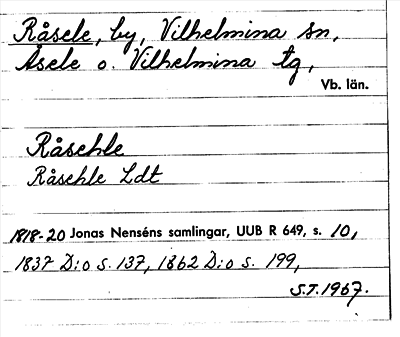 Råsele, by, Vilhelmina sn,
Åsele o. Vilhelmina tg,
Vb. län.
Råsehle
Råsehle Ldt
1818-20 Jonas Nenséns samlingar, UUB R 649, s. 10,
1837 D:o s. 137, 1862 D:o s. 199,
S.T. 1967.